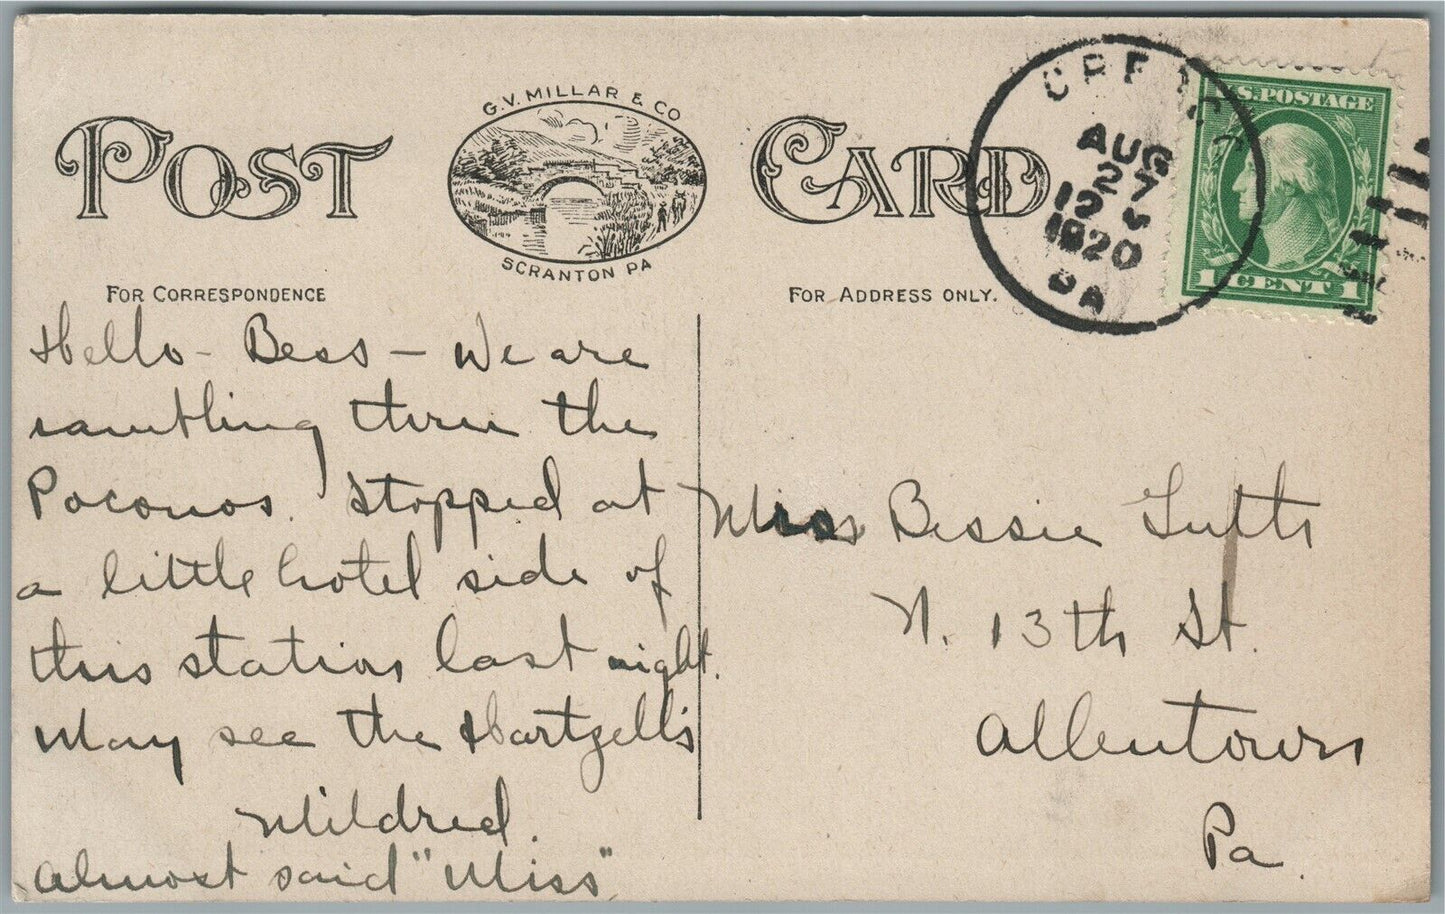 G.V. MILLAR & CO
POST CARD
SCRANTON PA
FOR CORRESPONDENCE
FOR ADDRESS ONLY.
AUG
27
1920
PA
U.S. POSTAGE
1 CENT 1
Hello - Bess - We are
rambling thru the
Poconos. Stopped at
a little hotel side of
this station last night.
May see the Hartzell's
Mildred.
almost said "Miss"
Miss Bessie
N. 13th St.
Allentown
Pa.